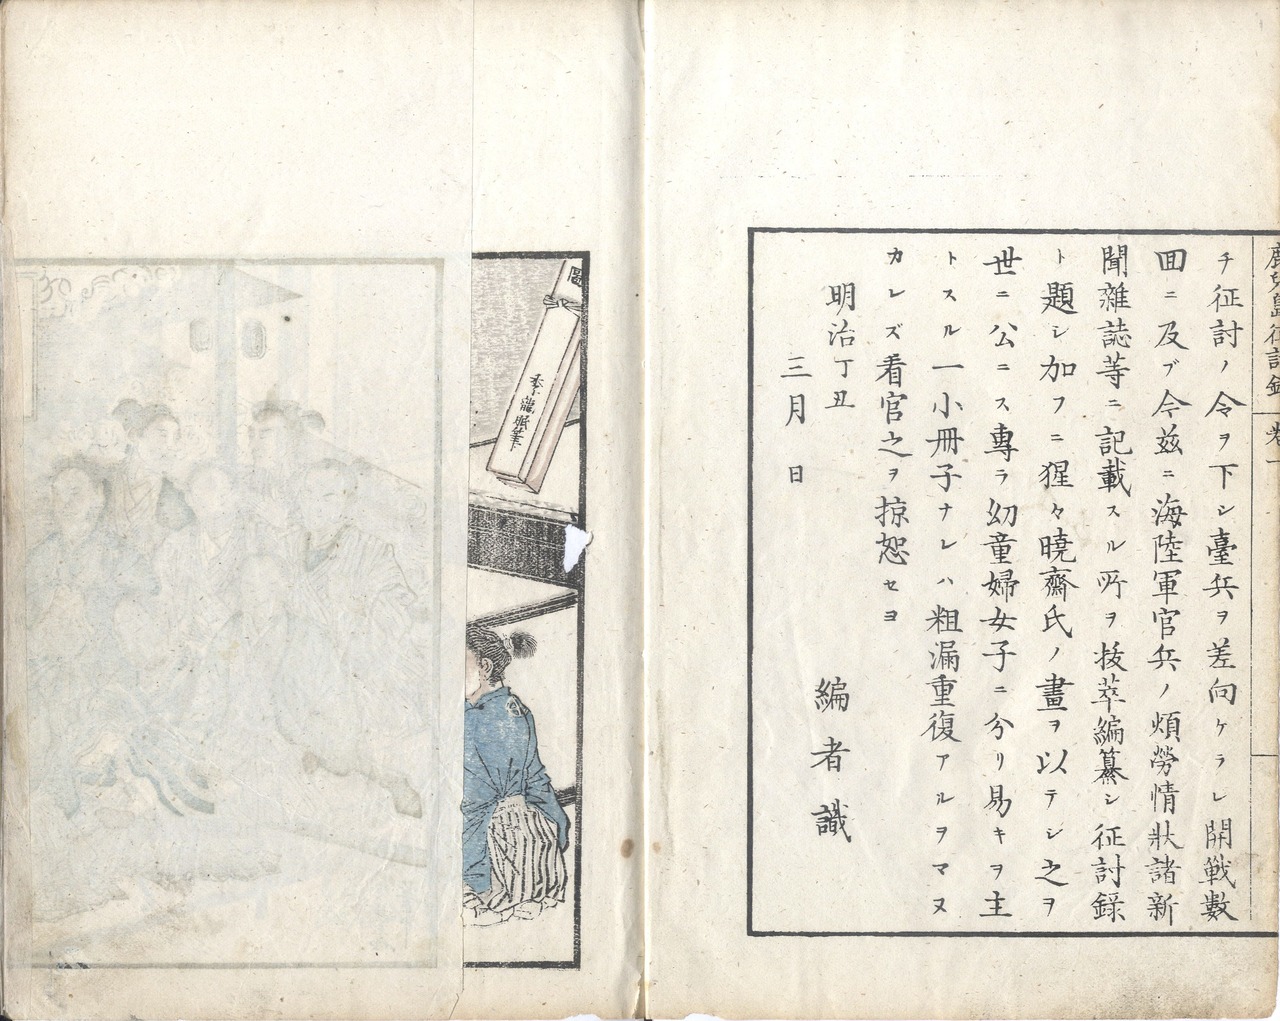 鹿兒島征討錄 卷一
チ征討ノ令ヲ下シ臺兵ヲ差向ケラレ開戰數
回ニ及ブ今茲ニ海陸軍官兵ノ煩勞情狀諸新
聞雜誌等ニ記載スル所ヲ抜萃編纂シ征討錄
ト題シ加フニ猩々曉齋氏ノ畫ヲ以テシ之ヲ
世ニ公ニス專ラ幼童婦女子ニ分リ易キヲ主
トスル一小冊子ナレハ粗漏重復アルヲマヌ
カレズ看官之ヲ掠恕セヨ
明治丁丑
三月 日
編者識
圖
龍眠筆